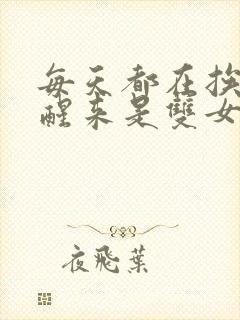 每天都在挨
醒來是雙女
夜飛葉